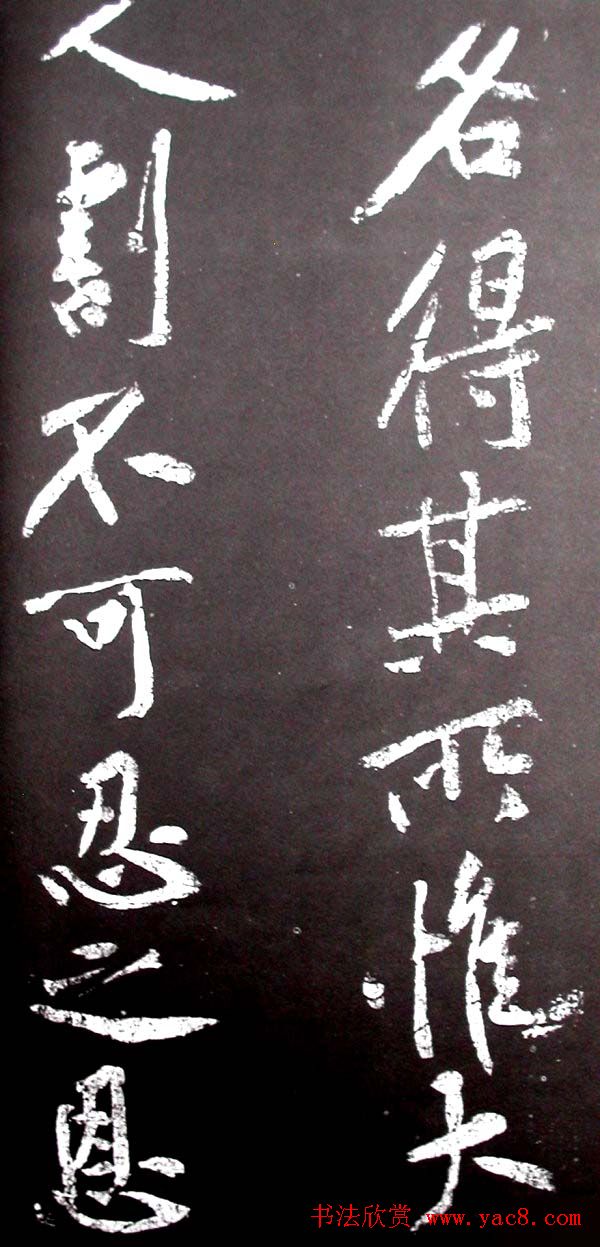 各得其所惟大
人割不可忍之恩
书法欣赏 www.yac8.com